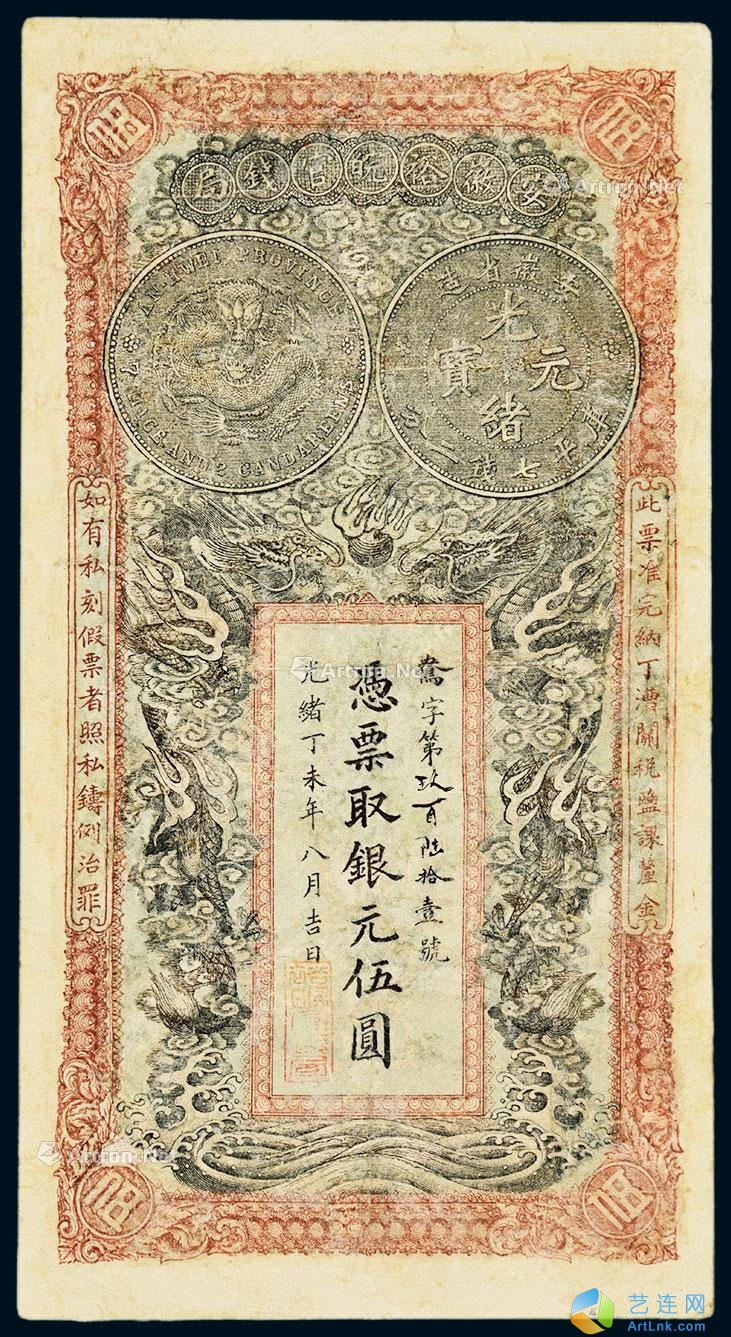 安徽裕皖官錢局
AN-HWEI PROVINCE
7 MACE AND 2 CANDAREENS
安徽省造
光緒元寶
庫平七錢二分
此票准完納丁漕關稅鹽課釐金
字第玖百陸拾壹號
憑票取銀元伍圓
光緒丁未年八月吉日
如有私刻假票者照私鑄例治罪
伍
伍
伍
伍
Artron.Net
Artron.Net
Artron.Net
Artron.Net
艺连网
ArtLnk.com